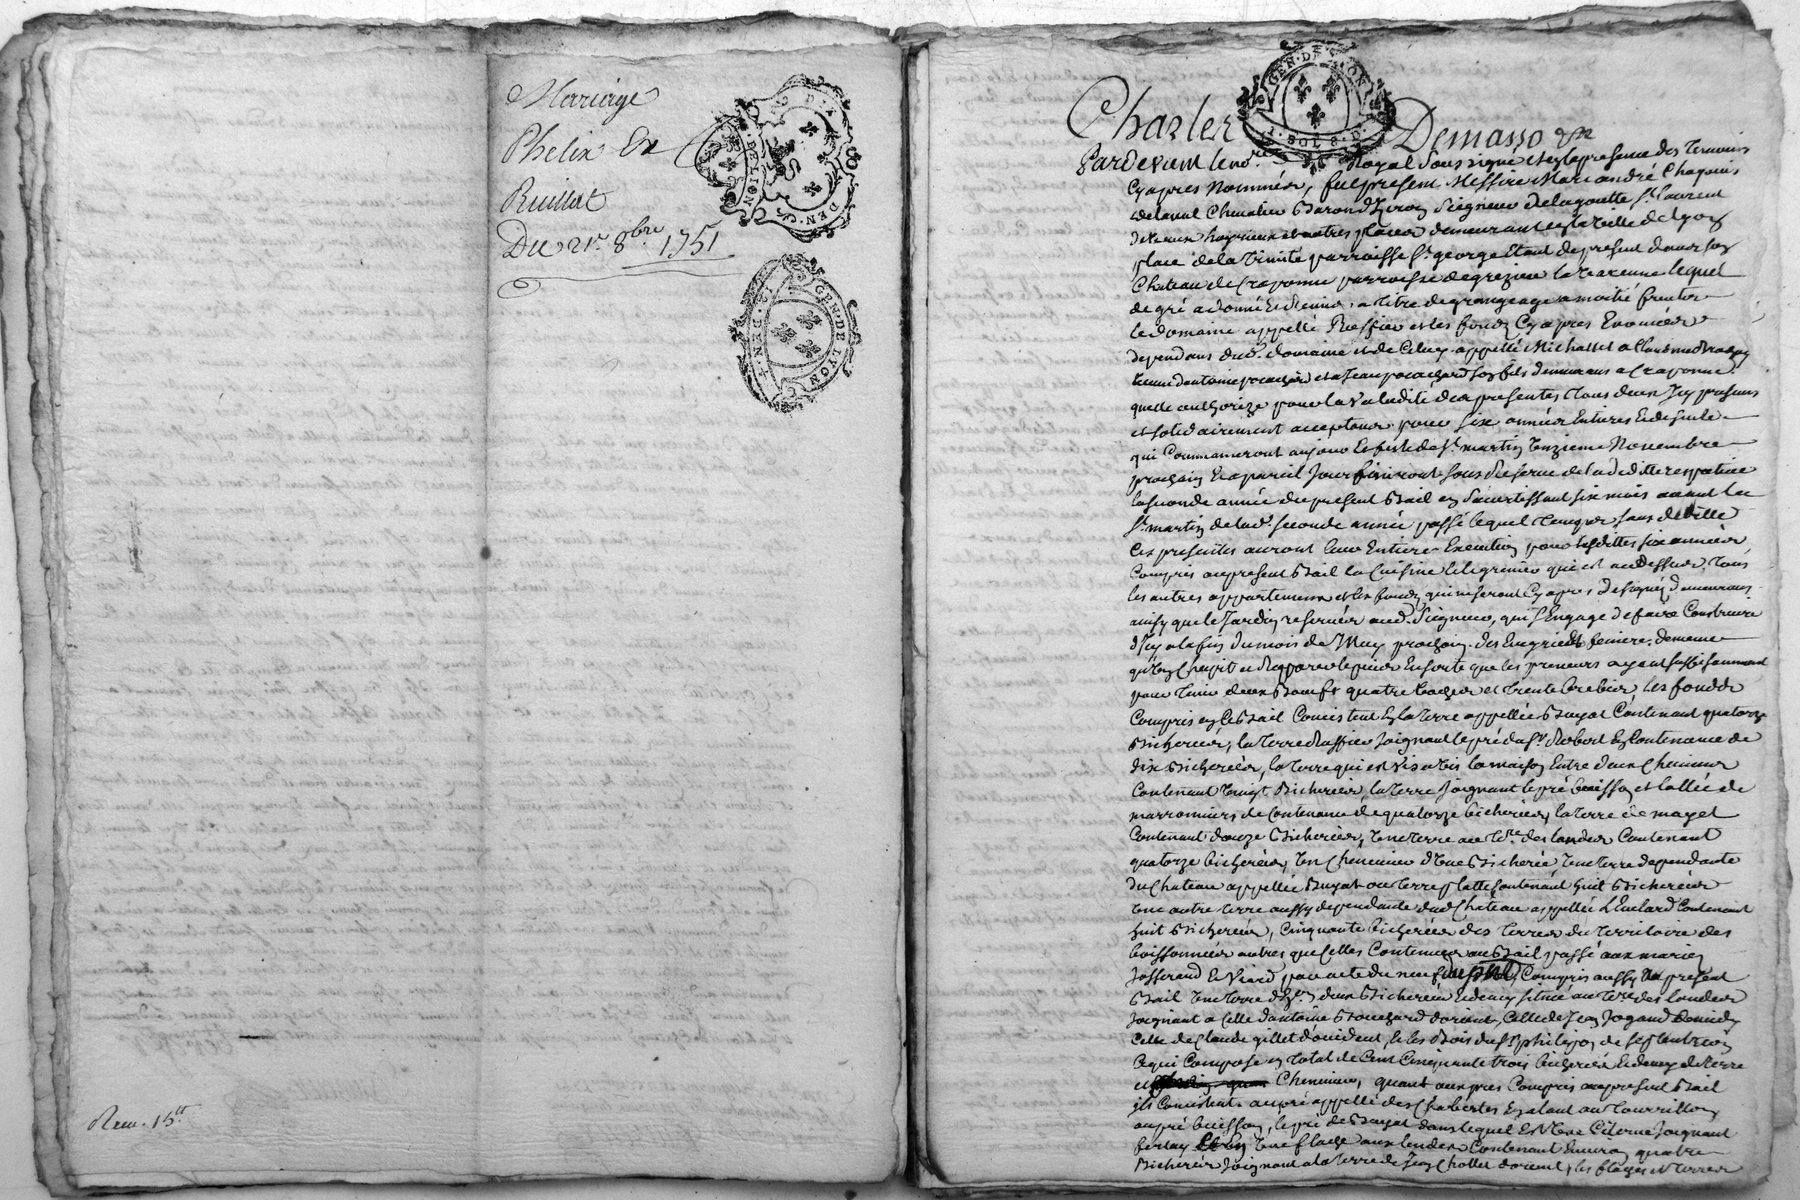 Mariage
Phelix Et
Ruillat
Du 21e 8bre 1751
GEN. DE LYON
GEN. DE LYON
Recu. 15tt
GEN. DE LYON
2 SOLS 8 D
Charles Demasso &
Pardevant le nore Royal soussigné et en la presence des temoins
Cy apres nommés, fut present Messire Marc andré Chapuis
delaval Chevalier Baron d'Yzeron Seigneur de la gouttte St. laurent
de Vaux et autres places demeurant en la ville de lyon
place de la Trinité parroisse St. george Etant de present dans son
Chateau de Craponne parroisse de grezieu la varenne lequel
de gré a donné et donne a titre de grangeage a moitié fruits
le domaine appellé Ruffier et les fonds Cy apres Enoncés
dependans dud. domaine et de Celuy appellé Michallet a
veuve d'antoine et a Jean son fils demeurans a Craponne
quelle authorize pour la validité des presentes tous deux Icy presents
et solidairement acceptans pour six années Entieres Et de suitte
qui Commanceront au jour Et feste de St. martin onzieme Novembre
prochain Et a pareil Jour finiront sous reserve de la deditte respective
la seconde année du present Bail en s'avertissant six mois avant la
St. martin de lad. seconde année passé lequel temps sans deditte
Ces presentes auront leur Entiere Execution pour lesdittes six années
Compris au present Bail la Cuisine et le grenier qui est au dessus, tous
les autres appartements et les fonds qui ne seront Cy apres designés demeurans
ainsy que le Jardin reservés aud. Seigneur, qui s'Engage de faire Construire
d'Icy a la fin du mois de May prochain des Ecuries et feniere de meme
qu'un en sorte que les preneurs ayent suffisamment
pour tenir deux Bœufs quatre vaches et trente brebis, les fonds
Compris en Ce Bail Consistent En la terre appellée Buyat Contenant quatorze
Bicherées, la terre Ruffier Joignant le pré du Sr. Robert En Contenance de
dix Bicherées, la terre qui est vis a vis la maison Entre deux Chemins
Contenant vingt Bicherées, la terre Joignant le pré buisson et l'allée de
marronniers de Contenance de quatorze bicherées, la terre de mayet
Contenant douze Bicherées, une terre au tre. des landes Contenant
quatorze bicherées, un Chenevier d'une Bicherée, une terre dependante
du Chateau appellée Buyat ou terre platte Contenant huit Bicherées
une autre terre aussy dependante dud. Chateau appellée Contenant
huit Bicherées, Cinquante bicherées des terres du territoire des
boissonnées autres que Celles Contenues au Bail passé aux mariés
Josserand et Viard, par acte du neuf Compris aussy au present
Bail une terre d'En. deux Bicherées Et demy située au tre. des landes
Joignant a Celle d'antoine Bouchard d'orient, Celle de Jean de midy
Celle de Claude gillet d'occident, et les Bois du Sr. philippon de septentrion
Ce qui Compose En total de Cent Cinquante trois bicherées Et demy de terre
et Chenevier, quant aux prés Compris au present Bail
ils Consistent au pré appellé des Chabertes Evaluat au tourrillon
au pré buisson, le pré de Buyat dans lequel Est une Citerne Joignant
une flache aux landes Contenant Environ quatre
Bicherées Joignant a la terre de Jean Chollet d'orient, les flaches et terres